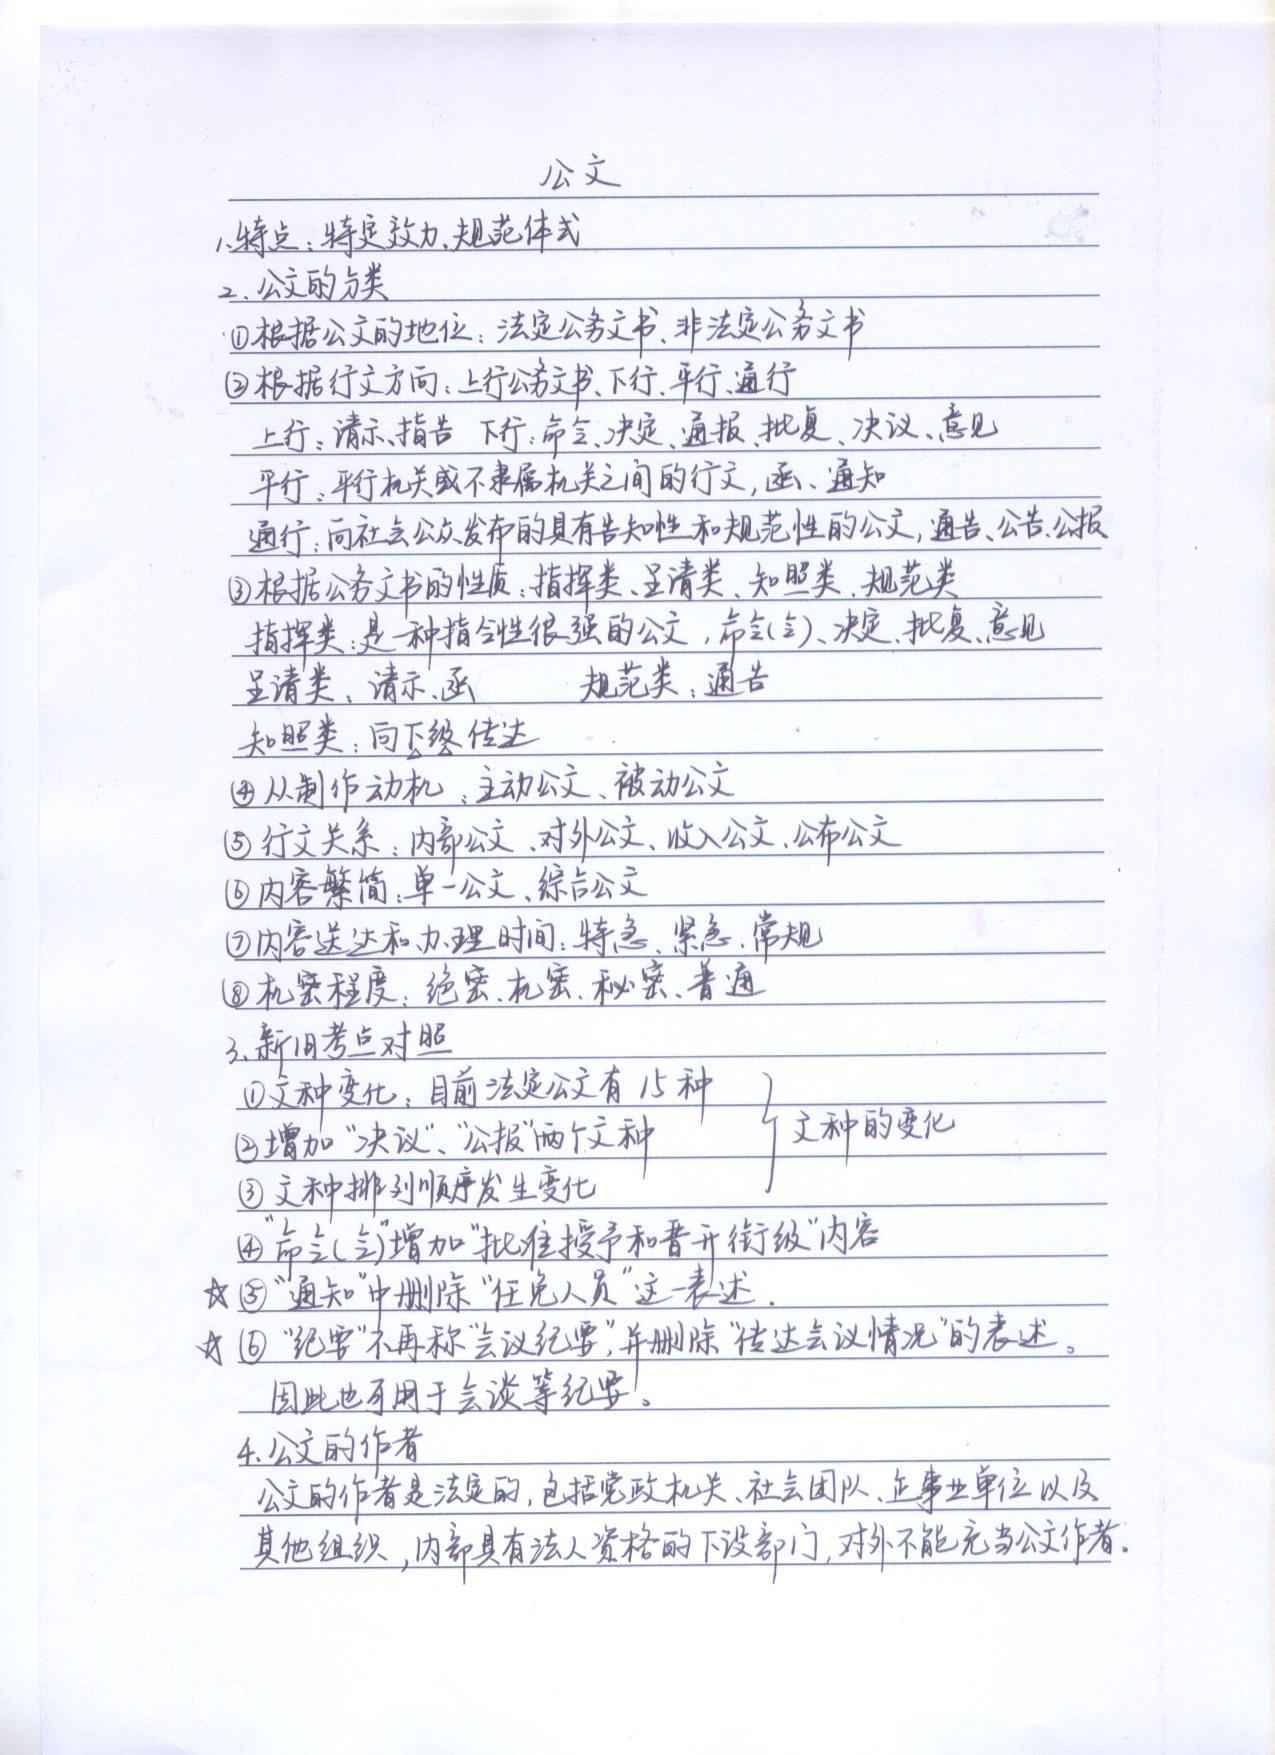 公文
1.特点：特定效力、规范体式
2.公文的分类
①根据公文的地位：法定公务文书、非法定公务文书
②根据行文方向：上行公务文书、下行、平行、通行
上行：请示、指告 下行：命令、决定、通报、批复、决议、意见
平行：平行机关或不隶属机关之间的行文，函、通知
通行：向社会公众发布的具有告知性和规范性的公文，通告、公告、公报
③根据公务文书的性质：指挥类、呈请类、知照类、规范类
指挥类：是一种指令性很强的公文，命令(令)、决定、批复、意见
呈请类：请示、函 规范类：通告
知照类：向下级传达
④从制作动机：主动公文、被动公文
⑤行文关系：内部公文、对外公文、收入公文、公布公文
⑥内容繁简：单一公文、综合公文
⑦内容送达和办理时间：特急、紧急、常规
⑧机密程度：绝密、机密、秘密、普通
3.新旧考点对照
①文种变化：目前法定公文有15种
②增加“决议”、“公报”两个文种
文种的变化
③文种排列顺序发生变化
④“命令(令)”增加“批准授予和晋升衔级”内容
☆⑤“通知”中删除“任免人员”这一表述.
☆⑥“纪要”不再称“会议纪要”，并删除“传达会议情况”的表述。
因此也可用于会谈等纪要。
4.公文的作者
公文的作者是法定的，包括党政机关、社会团队、企事业单位以及
其他组织，内部具有法人资格的下设部门，对外不能充当公文作者.